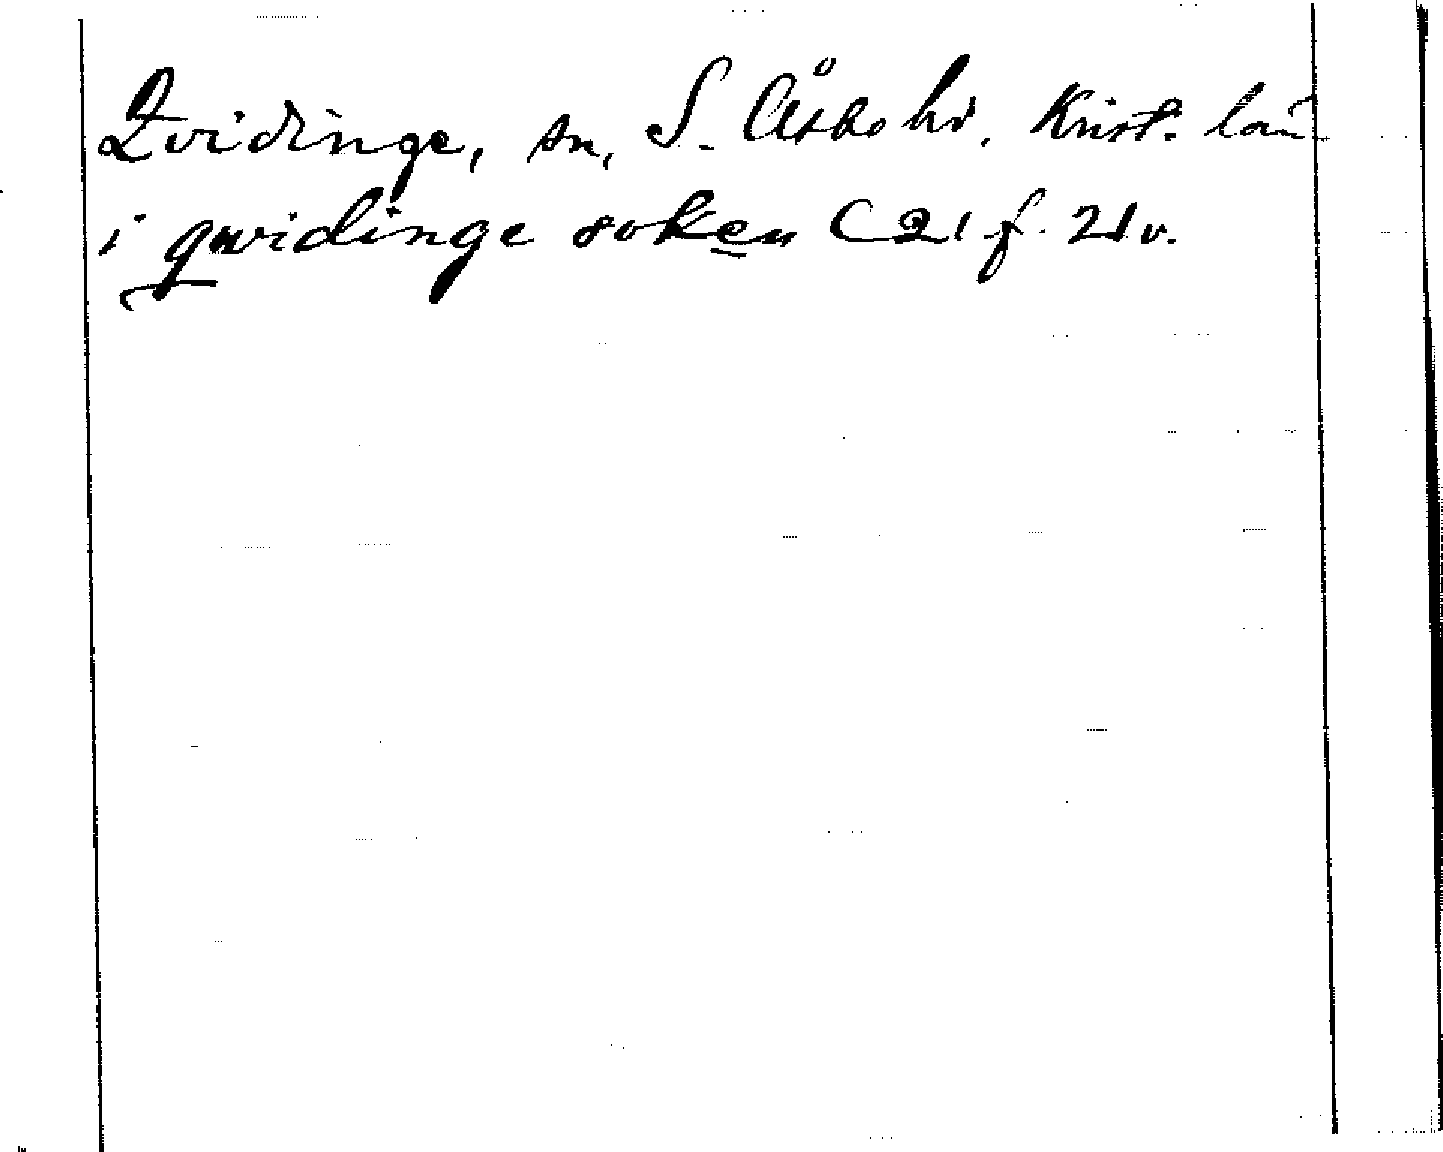 Qvidinge, sn, S. Åsbo hd. Krist. län
i qwidinge soken C 21 f. 21 v.